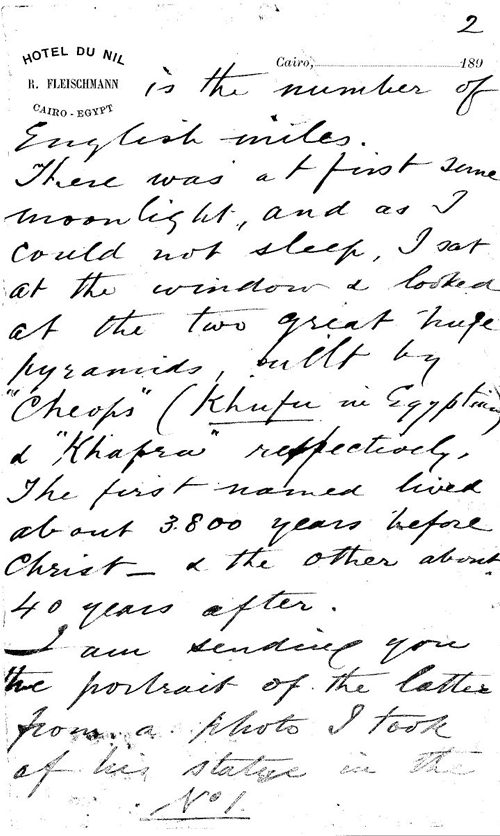 2
HOTEL DU NIL
R. FLEISCHMANN
CAIRO - EGYPT
Cairo, 189
is the number of
English miles.
There was at first some
moonlight, and as I
could not sleep, I sat
at the window & looked
at the two great huge
pyramids, built by
"Cheops" (Khufu in Egyptian)
& "Khafra" respectively.
The first named lived
about 3.800 years before
Christ — & the other about
40 years after.
I am sending you
the portrait of the latter
from a photo I took
of his statue in the
No 1.